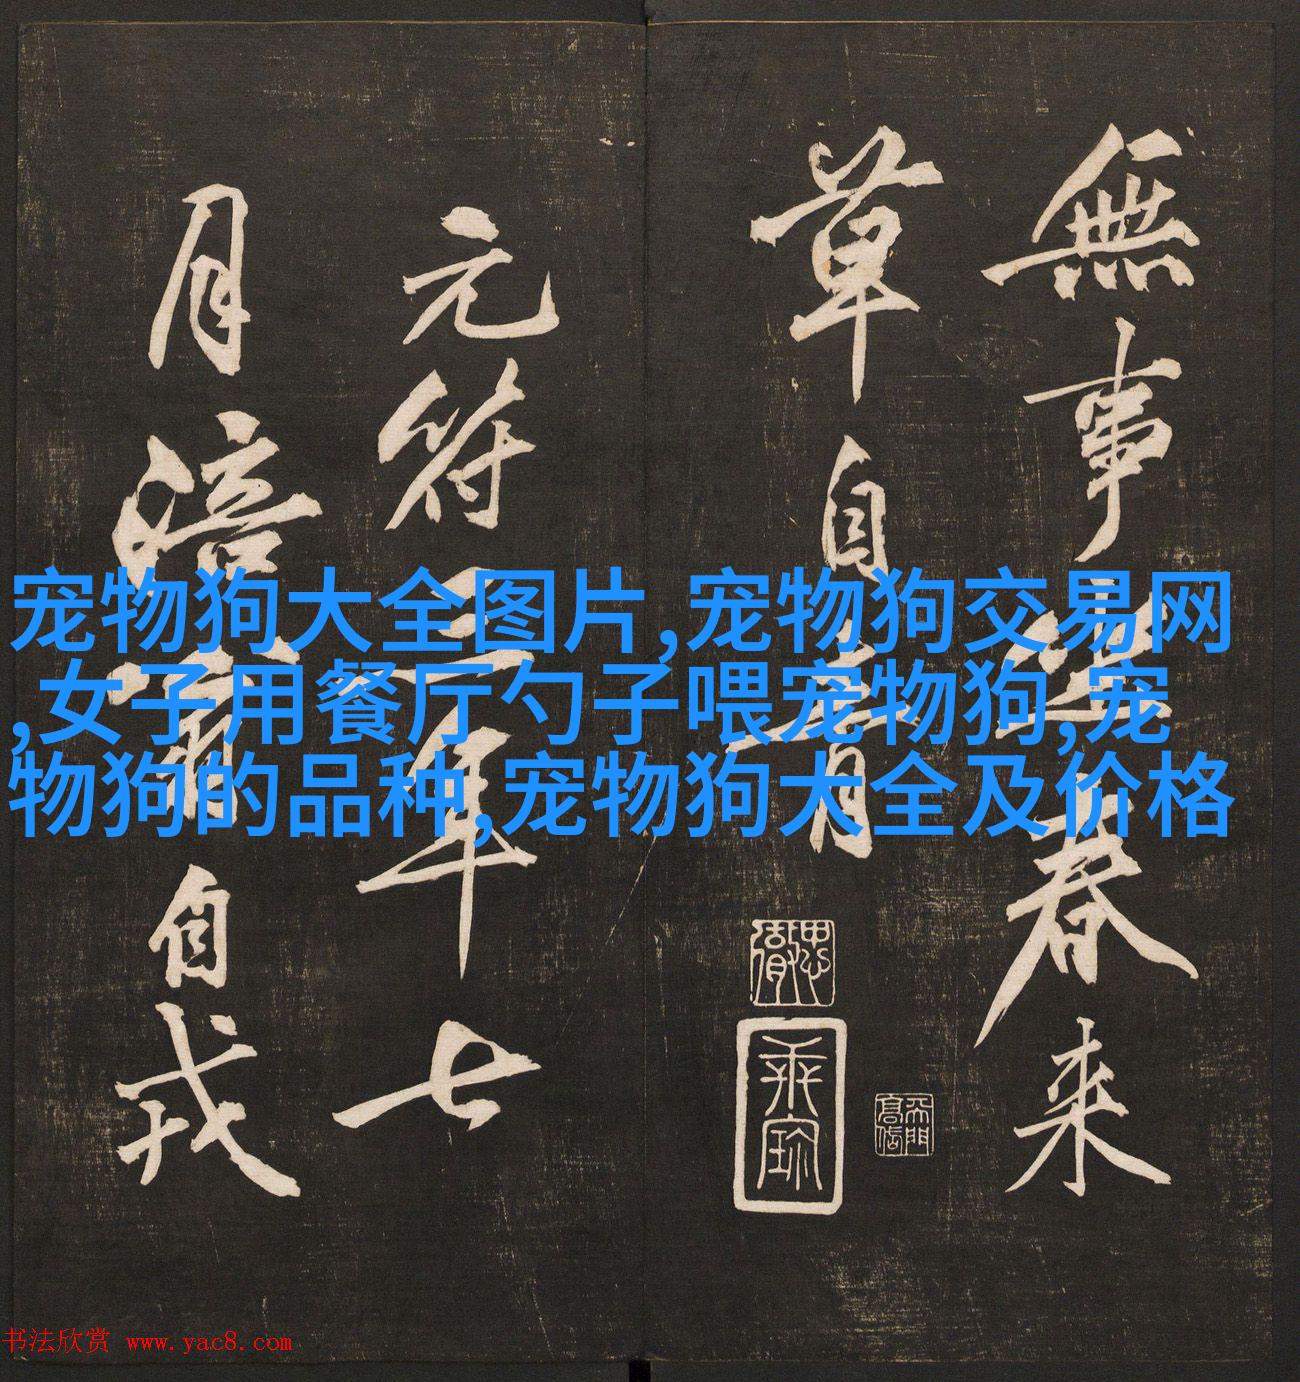 無事坐春来
草自青
元符三年七
月涪翁自戎
宠物狗大全图片,宠物狗交易网
,女子用餐厅勺子喂宠物狗,宠
物狗的品种,宠物狗大全及价格
书法欣赏 www.yac8.com